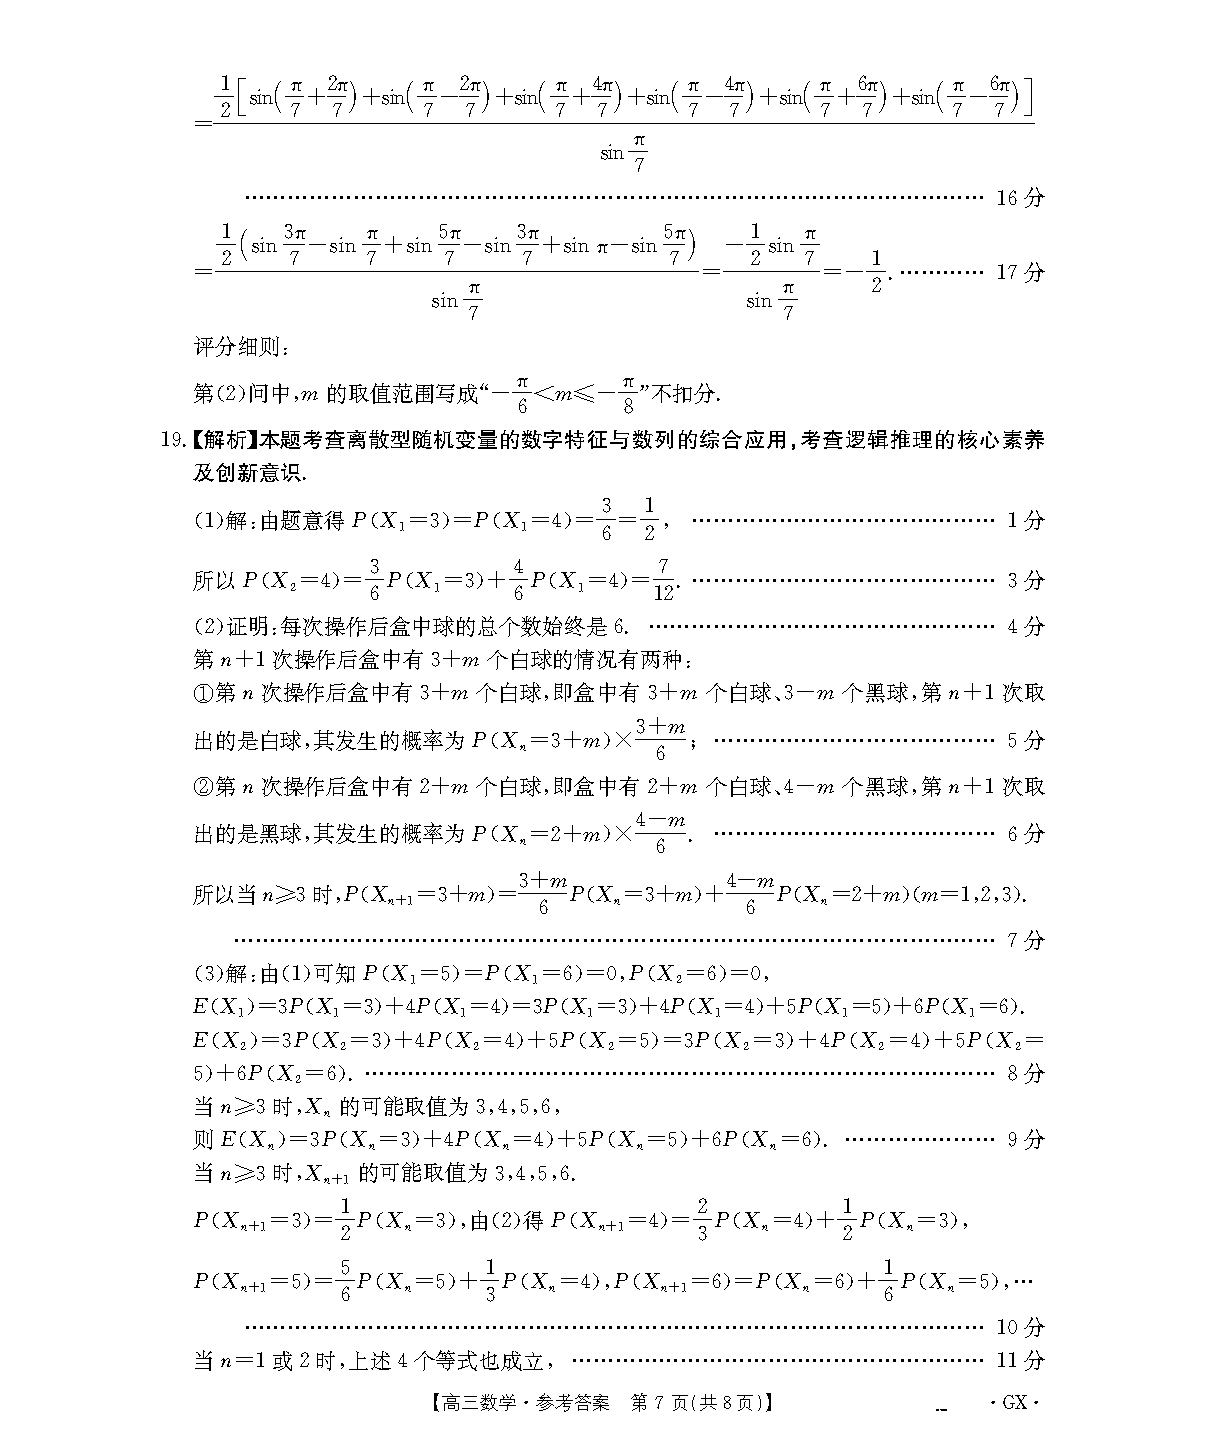 =\frac{\frac{1}{2}\left[\sin\left(\frac{π}{7}+\frac{2π}{7}\right)+\sin\left(\frac{π}{7}-\frac{2π}{7}\right)+\sin\left(\frac{π}{7}+\frac{4π}{7}\right)+\sin\left(\frac{π}{7}-\frac{4π}{7}\right)+\sin\left(\frac{π}{7}+\frac{6π}{7}\right)+\sin\left(\frac{π}{7}-\frac{6π}{7}\right)\right]}{\sin\frac{π}{7}}
………………………………………………………………………… 16 分
=\frac{\frac{1}{2}\left(\sin\frac{3π}{7}-\sin\frac{π}{7}+\sin\frac{5π}{7}-\sin\frac{3π}{7}+\sin π-\sin\frac{5π}{7}\right)}{\sin\frac{π}{7}}=\frac{-\frac{1}{2}\sin\frac{π}{7}}{\sin\frac{π}{7}}=-\frac{1}{2}. ………… 17 分
评分细则:
第(2)问中,m 的取值范围写成“-\frac{π}{6}<m≤-\frac{π}{8}”不扣分.
19.【解析】本题考查离散型随机变量的数字特征与数列的综合应用,考查逻辑推理的核心素养
及创新意识.
(1)解:由题意得 P(X₁=3)=P(X₁=4)=\frac{3}{6}=\frac{1}{2}, …………………………………… 1 分
所以 P(X₂=4)=\frac{3}{6}P(X₁=3)+\frac{4}{6}P(X₁=4)=\frac{7}{12}. …………………………………… 3 分
(2)证明:每次操作后盒中球的总个数始终是 6. ………………………………………… 4 分
第 n+1 次操作后盒中有 3+m 个白球的情况有两种:
①第 n 次操作后盒中有 3+m 个白球,即盒中有 3+m 个白球、3-m 个黑球,第 n+1 次取
出的是白球,其发生的概率为 P(Xₙ=3+m)×\frac{3+m}{6}; ………………………………… 5 分
②第 n 次操作后盒中有 2+m 个白球,即盒中有 2+m 个白球、4-m 个黑球,第 n+1 次取
出的是黑球,其发生的概率为 P(Xₙ=2+m)×\frac{4-m}{6}. ………………………………… 6 分
所以当 n≥3 时,P(Xₙ₊₁=3+m)=\frac{3+m}{6}P(Xₙ=3+m)+\frac{4-m}{6}P(Xₙ=2+m)(m=1,2,3).
………………………………………………………………………… 7 分
(3)解:由(1)可知 P(X₁=5)=P(X₁=6)=0,P(X₂=6)=0,
E(X₁)=3P(X₁=3)+4P(X₁=4)=3P(X₁=3)+4P(X₁=4)+5P(X₁=5)+6P(X₁=6).
E(X₂)=3P(X₂=3)+4P(X₂=4)+5P(X₂=5)=3P(X₂=3)+4P(X₂=4)+5P(X₂=
5)+6P(X₂=6). …………………………………………………………………… 8 分
当 n≥3 时,Xₙ 的可能取值为 3,4,5,6,
则 E(Xₙ)=3P(Xₙ=3)+4P(Xₙ=4)+5P(Xₙ=5)+6P(Xₙ=6). ………………… 9 分
当 n≥3 时,Xₙ₊₁ 的可能取值为 3,4,5,6.
P(Xₙ₊₁=3)=\frac{1}{2}P(Xₙ=3),由(2)得 P(Xₙ₊₁=4)=\frac{2}{3}P(Xₙ=4)+\frac{1}{2}P(Xₙ=3),
P(Xₙ₊₁=5)=\frac{5}{6}P(Xₙ=5)+\frac{1}{3}P(Xₙ=4),P(Xₙ₊₁=6)=P(Xₙ=6)+\frac{1}{6}P(Xₙ=5),…
………………………………………………………………………… 10 分
当 n=1 或 2 时,上述 4 个等式也成立, ………………………………………………… 11 分
【高三数学·参考答案 第 7 页(共 8 页)】 ·GX·